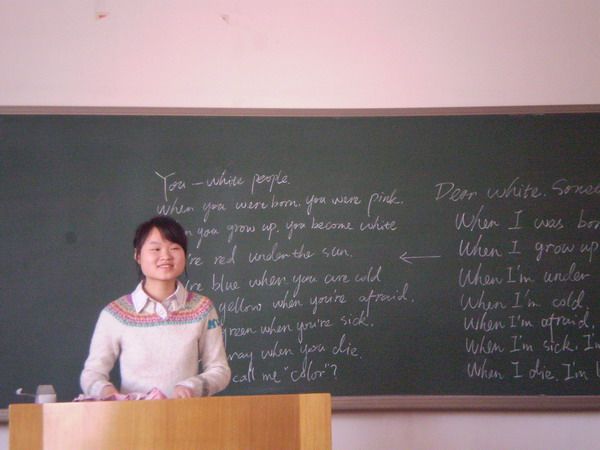 You – white people.
When you were born, you were pink.
you grow up, you become white
red under the sun.
blue when you are cold
yellow when you're afraid.
green when you're sick.
when you die.
call me "color"?
Dear white.
When I was
When I grow up
When I'm under
When I'm cold.
When I'm afraid.
When I'm sick.
When I die. I'm